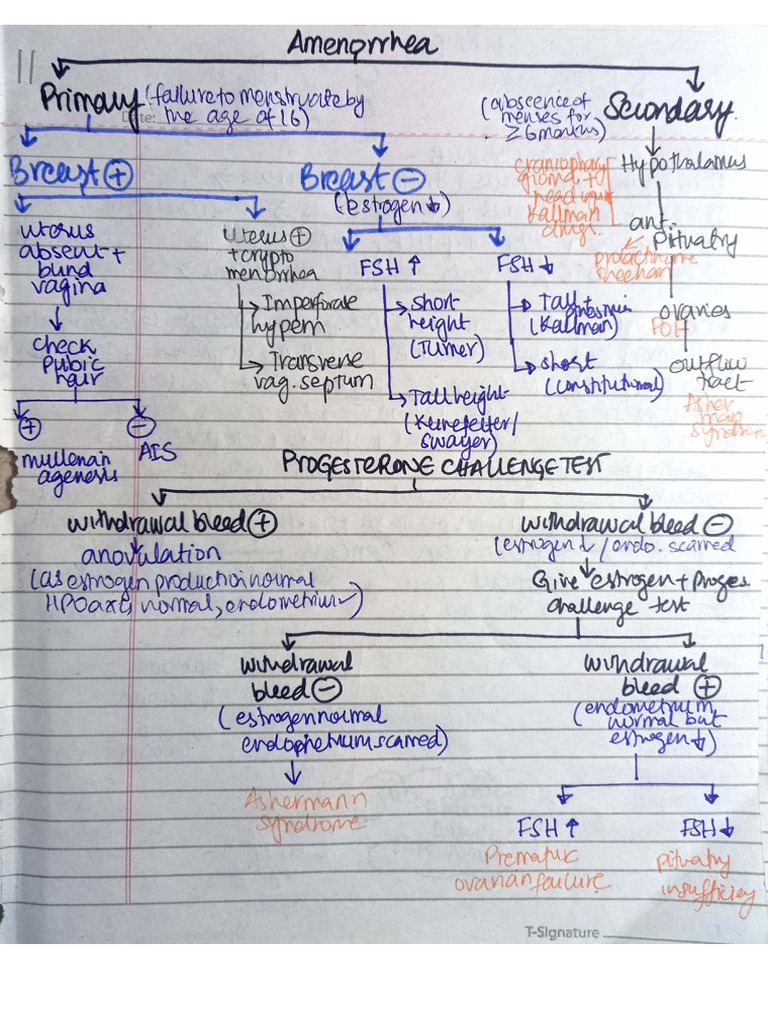 Amenorrhea
Primary (failure to menstruate by
the age of 16)
Date:
(abscence of
menses for
≥ 6 months)
Secondary
Breast ⊕
Breast ⊖
(estrogen ↓)
uterus
absent +
blind
vagina
check
pubic
hair
⊕
⊖
mullerian
agenesis
AIS
Uterus ⊕
+ crypto
menorrhea
Imperforate
hypem
Transverse
vag. septum
FSH ↑
FSH ↓
short
height
(Turner)
Tall height
(Kunefelter/
swayer)
Tall +
(Kallman)
short
(constitutional)
craniophary
gioma +
Kallman
drugs.
Hypothalamus
ant.
Pituatry
prolactinoma
sheehan
ovaries
POF
outflow
tract
Asher
man
syndrom
PROGESTERONE CHALLENGE TEST
withdrawal bleed ⊕
anovulation
(as estrogen production normal
HPO axis normal, endometrium ✓)
withdrawal bleed ⊖
(estrogen ↓ / endo. scarred
Give estrogen + Proges.
challenge test
withdrawal
bleed ⊖
(estrogen normal
endometrium scarred)
Ashermann
syndrome
withdrawal
bleed ⊕
(endometrium
normal but
estrogen ↓)
FSH ↑
FSH ↓
Prematuic
ovarian failure.
pituatry
insufficiey
T-Signature